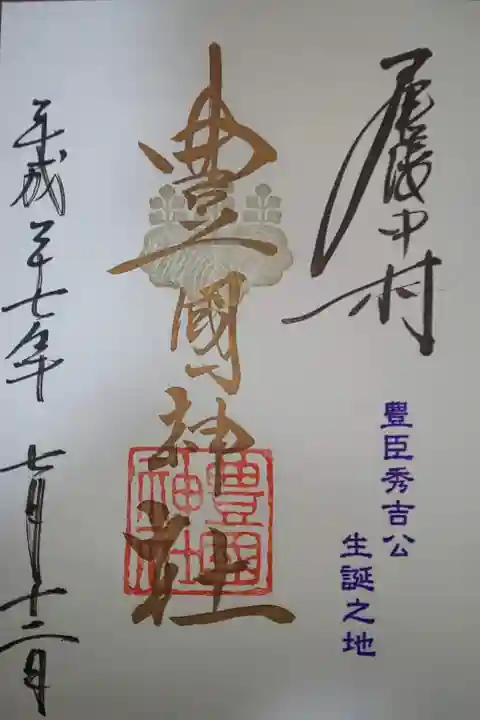 尾張中村
豊臣秀吉公
生誕之地
豊國神社
豊国
神社
平成二十七年 七月十二日